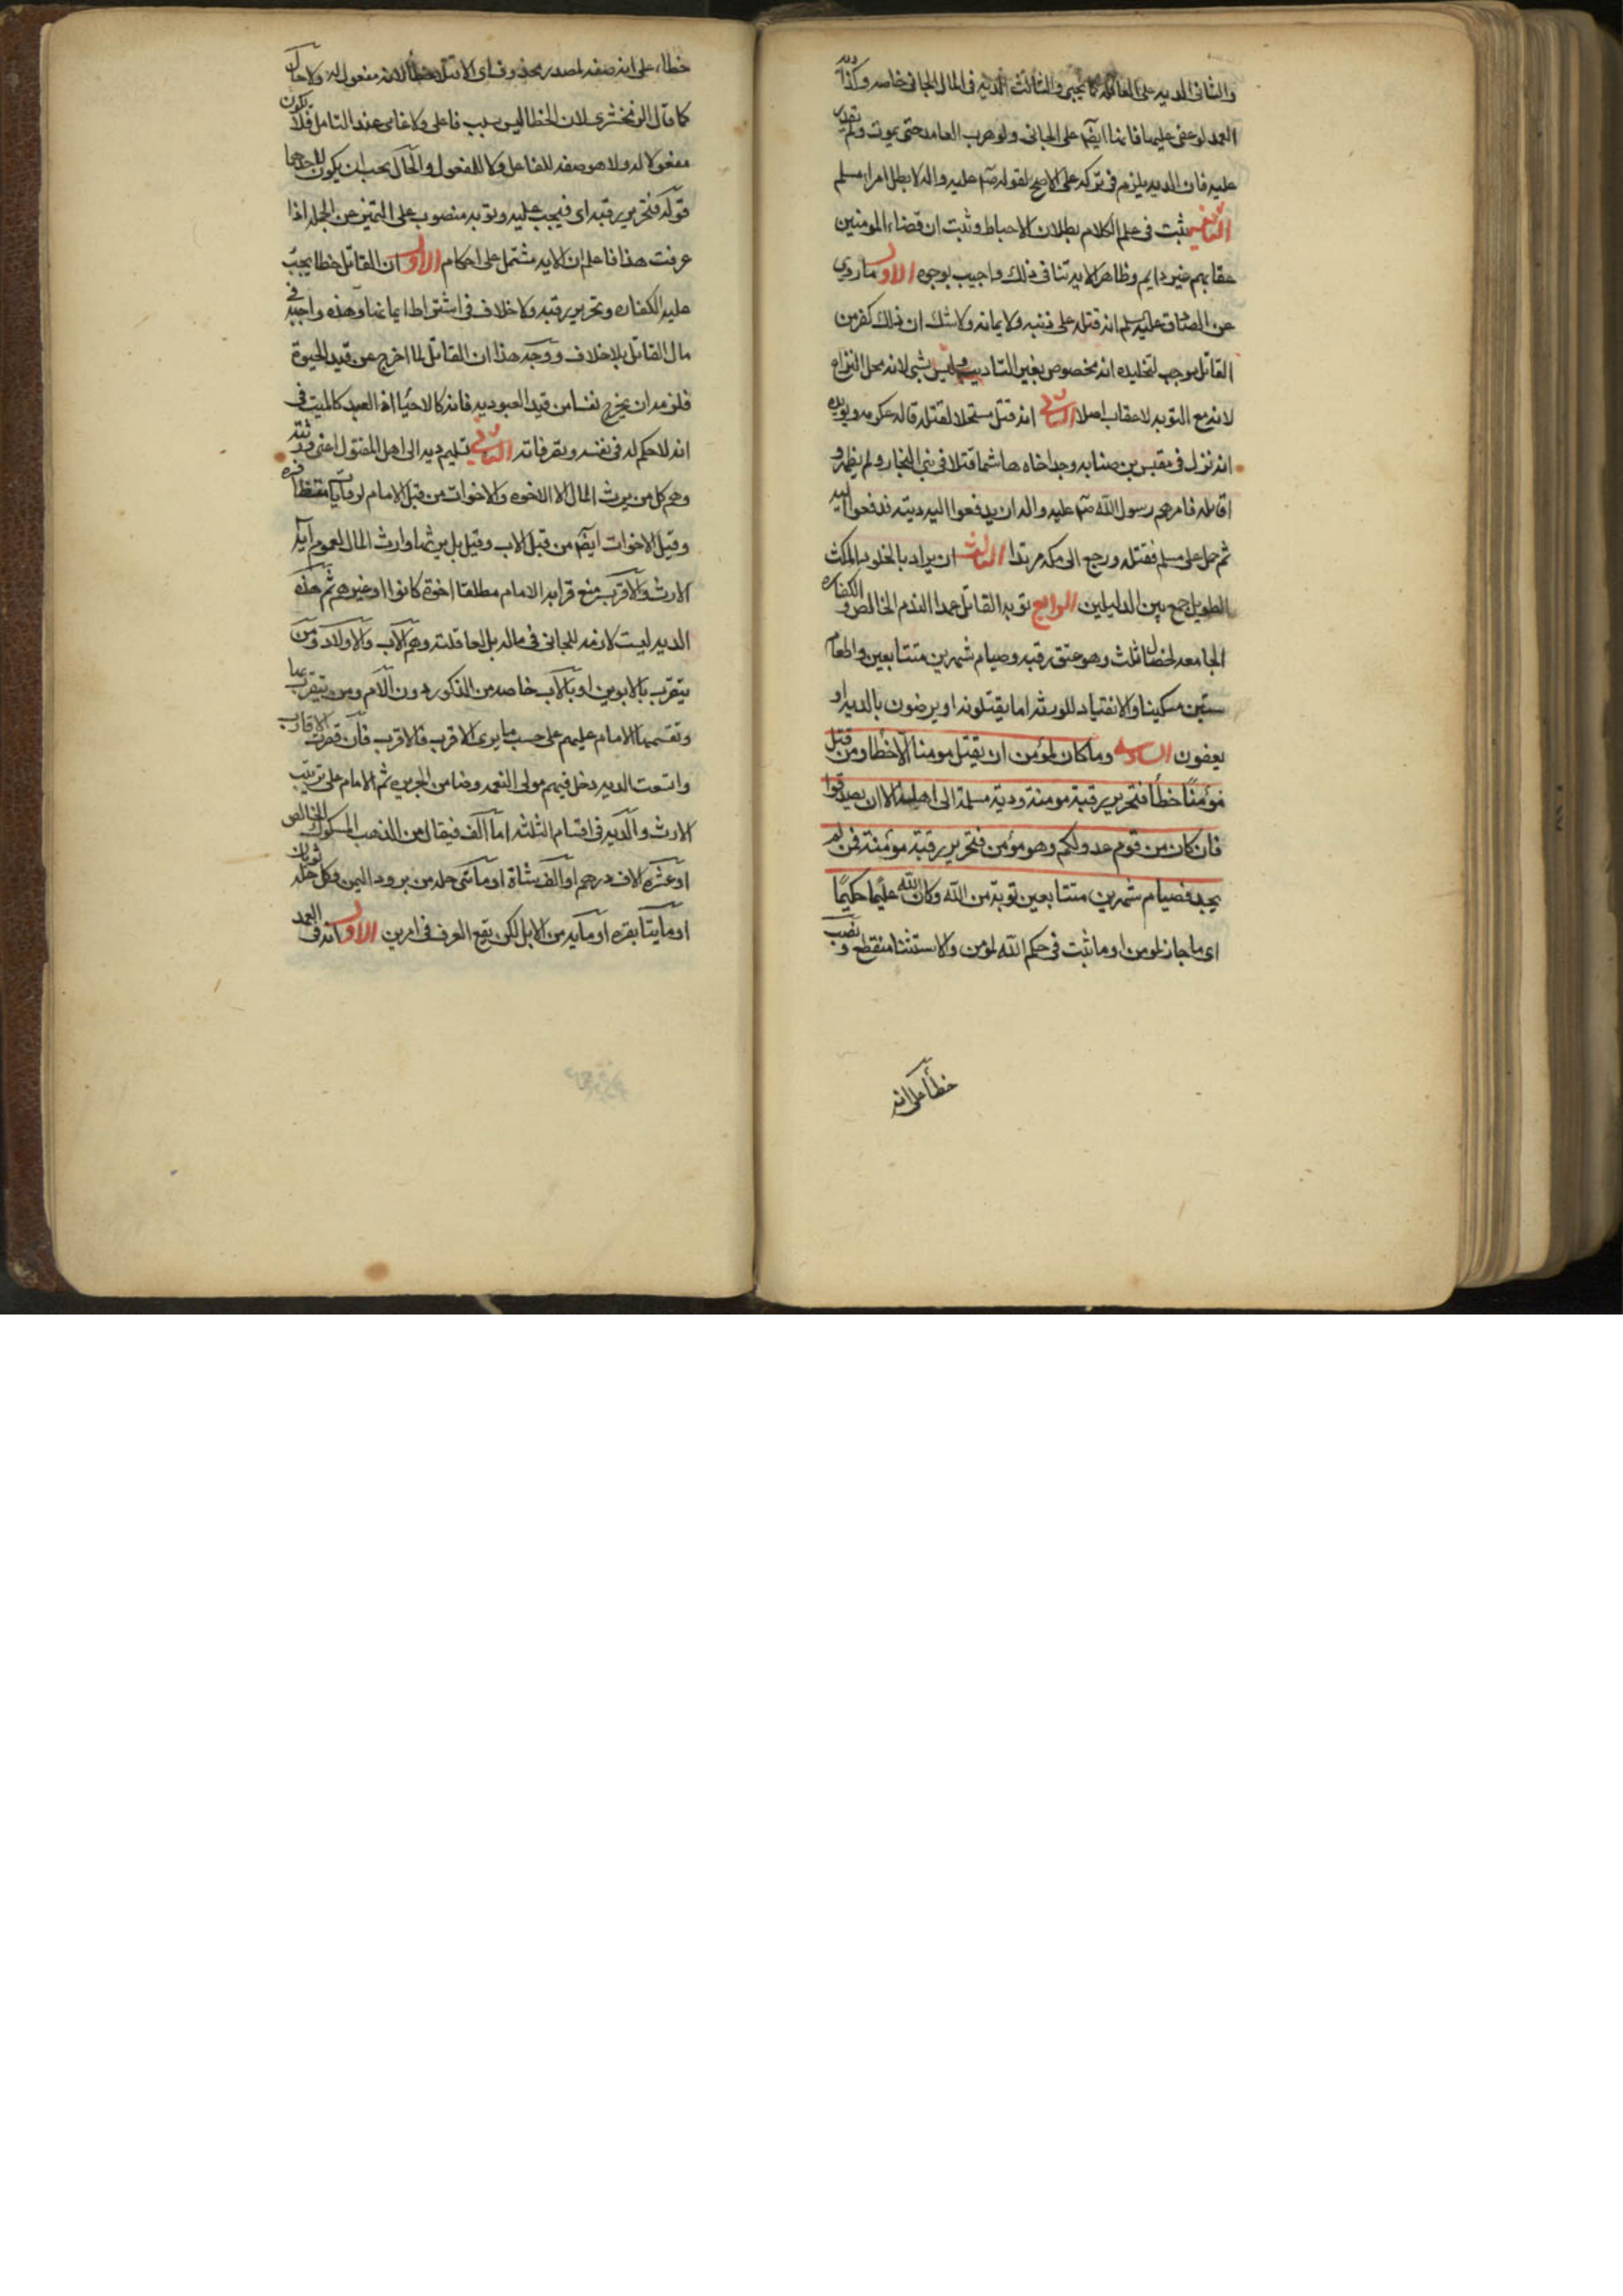 والثانى الديه على العاقله كما يجيى والثالث الديه فى المال الجانى خاصه وكذا
العمد لو عفى عليها فانها ايضا على الجانى ولو هرب العامد حتى يموت ولم يقدر
عليه فان الديه يلزم فى تركه على الاصح لقوله صم عليه واله لا يطل امرا مسلم
ثبت فى علم الكلام بطلان الاحباط وثبت ان قضاء المومنين
عقابهم غير دايم وظاهر الايه تنافى ذلك واجيب بوجوه الاول ما روى
عن الصادق عليه سلم انه قتله على دينه ولايمانه ولا شك ان ذلك كفر من
القاتل موجب لتخليده انه مخصوص بغير التاديب وليس بشى لانه محل النزاع
لانه مع التوبه لا عقاب اصلا الثانى انه قتل مستحلا لقتله قاله عكرمه ويويده
انه نزل فى مقيس بن صبابه وجد اخاه هاشما قتلا فى بنى النجار ولم يظهر و
قاتله فامرهم رسول الله صم عليه واله ان يدفعوا اليه ديته فدفعوا اليه
ثم حمل على مسلم فقتله ورجع الى مكه مرتدا الثالث ان يراد بالخلود المكث
الطويل جمع بين الدليلين الرابع توبه القاتل عمدا الندم الخالص و الكفاره
الجامعه لخصال ثلث وهو عتق رقبه وصيام شهرين متتابعين واطعام
ستين مسكينا والانقياد للورثه اما يقتلونه او يرضون بالديه او
يعفون السادسه وما كان لمؤمن ان يقتل مومنا الا خطا ومن قتل
مؤمنًا خطأ فتحرير رقبة مومنة ودية مسلمة الى اهله الا ان يصدقوا
فان كان من قوم عدو لكم وهو مؤمن فتحرير رقبة مؤمنة فمن لم
يجد فصيام شهرين متتابعين توبة من الله وكان الله عليمًا حكيمًا
اى ما جاز لمومن او ما ثبت فى حكم الله لمؤمن والاستثنا منقطع و نصب
خطأ على انه
خطاء على انه صفه لمصدر محذوف اى الا قتلا خطأ لا انه مفعول له ولا حال
كما قال الزمخشرى لان الخطا ليس بسبب فاعلى ولا غائى عند التامل فلا يكون
مفعولا له ولا هو صفه للفاعل ولا للمفعول والحال يجب ان يكون لاحدهما
قوله فتحرير رقبه اى فيجب عليه وتوبه منصوب على التميز عن الجمله اذا
عرفت هذا فاعلم ان الايه مشتمل على احكام الاول ان القاتل خطا يجب
عليه الكفاره وتحرير رقبه ولا خلاف فى اشتراط ايمانها وهذه واجبه فى
مال القاتل بلا خلاف ووجه هذا ان القاتل لما اخرج عن قيد الحيوة
فلزمه ان يخرج نفسا من قيد العبوديه فانه كالاحيا اذ العبد كالميت فى
انه لا حكم له فى نفسه وتصرفاته الثانى تسليم ديه الى اهل المقتول اعنى ورثته
وهم كل من يرث المال الا الاخوه والاخوات من قبل الام
وقيل الاخوات ايضا من قبل الاب وقيل بل يرثها وارث المال لعموم آية
الارث والاقرب منع قرابه الام مطلقا اخوة كانوا او غيرهم ثم هذه
الديه ليست لازمه للجانى فى ماله بل لعاقلته وهم الاب والاولاد ومن
يتقرب بالابوين او بالاب خاصه من الذكور دون الام ومن يتقرب بها
وتقسمها الامام عليهم على حسب ما يرى الاقرب فالاقرب فان قصرت الاقارب
واتسعت الديه دخل فيهم مولى النعمه وضامن الجريره ثم الامام على ترتيب
الارث والديه فى اقسام الثلثه اما الف مثقال من الذهب المسكوك الخالص
او عشره الاف درهم او الف شاة او مأتى حله من برود اليمن وكل حله ثوبان
او مايتا بقره او مايه من الابل لكن يقع الفرق فى امرين الاول انه فى العمد